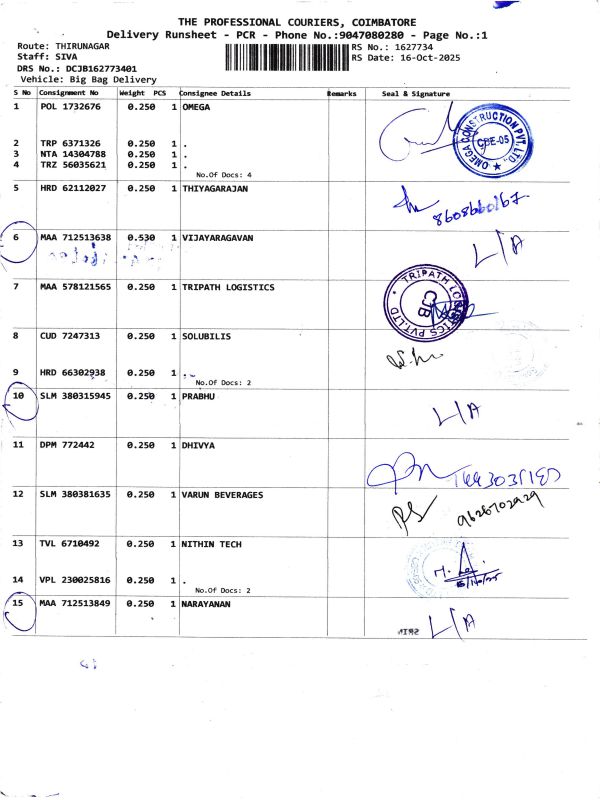 THE PROFESSIONAL COURIERS, COIMBATORE
Delivery Runsheet - PCR - Phone No.:9047080280 - Page No.:1
Route: THIRUNAGAR RS No.: 1627734
Staff: SIVA RS Date: 16-Oct-2025
DRS No.: DCJB162773401
Vehicle: Big Bag Delivery
S No Consignment No Weight PCS Consignee Details Remarks Seal & Signature
1 POL 1732676 0.250 1 OMEGA
OMEGA CONSTRUCTION PVT. LTD. CBE-05
2 TRP 6371326 0.250 1 .
3 NTA 14304788 0.250 1 .
4 TRZ 56035621 0.250 1 .
No.Of Docs: 4
5 HRD 62112027 0.250 1 THIYAGARAJAN
8608660167
6 MAA 712513638 0.530 1 VIJAYARAGAVAN L/A
7 MAA 578121565 0.250 1 TRIPATH LOGISTICS
TRIPATH LOGISTICS PVT.LTD CJB
8 CUD 7247313 0.250 1 SOLUBILIS
9 HRD 66302938 0.250 1 .
No.Of Docs: 2
10 SLM 380315945 0.250 1 PRABHU L/A
11 DPM 772442 0.250 1 DHIVYA
12 SLM 380381635 0.250 1 VARUN BEVERAGES
9626702929
13 TVL 6710492 0.250 1 NITHIN TECH
14 VPL 230025816 0.250 1 .
No.Of Docs: 2
15 MAA 712513849 0.250 1 NARAYANAN L/A